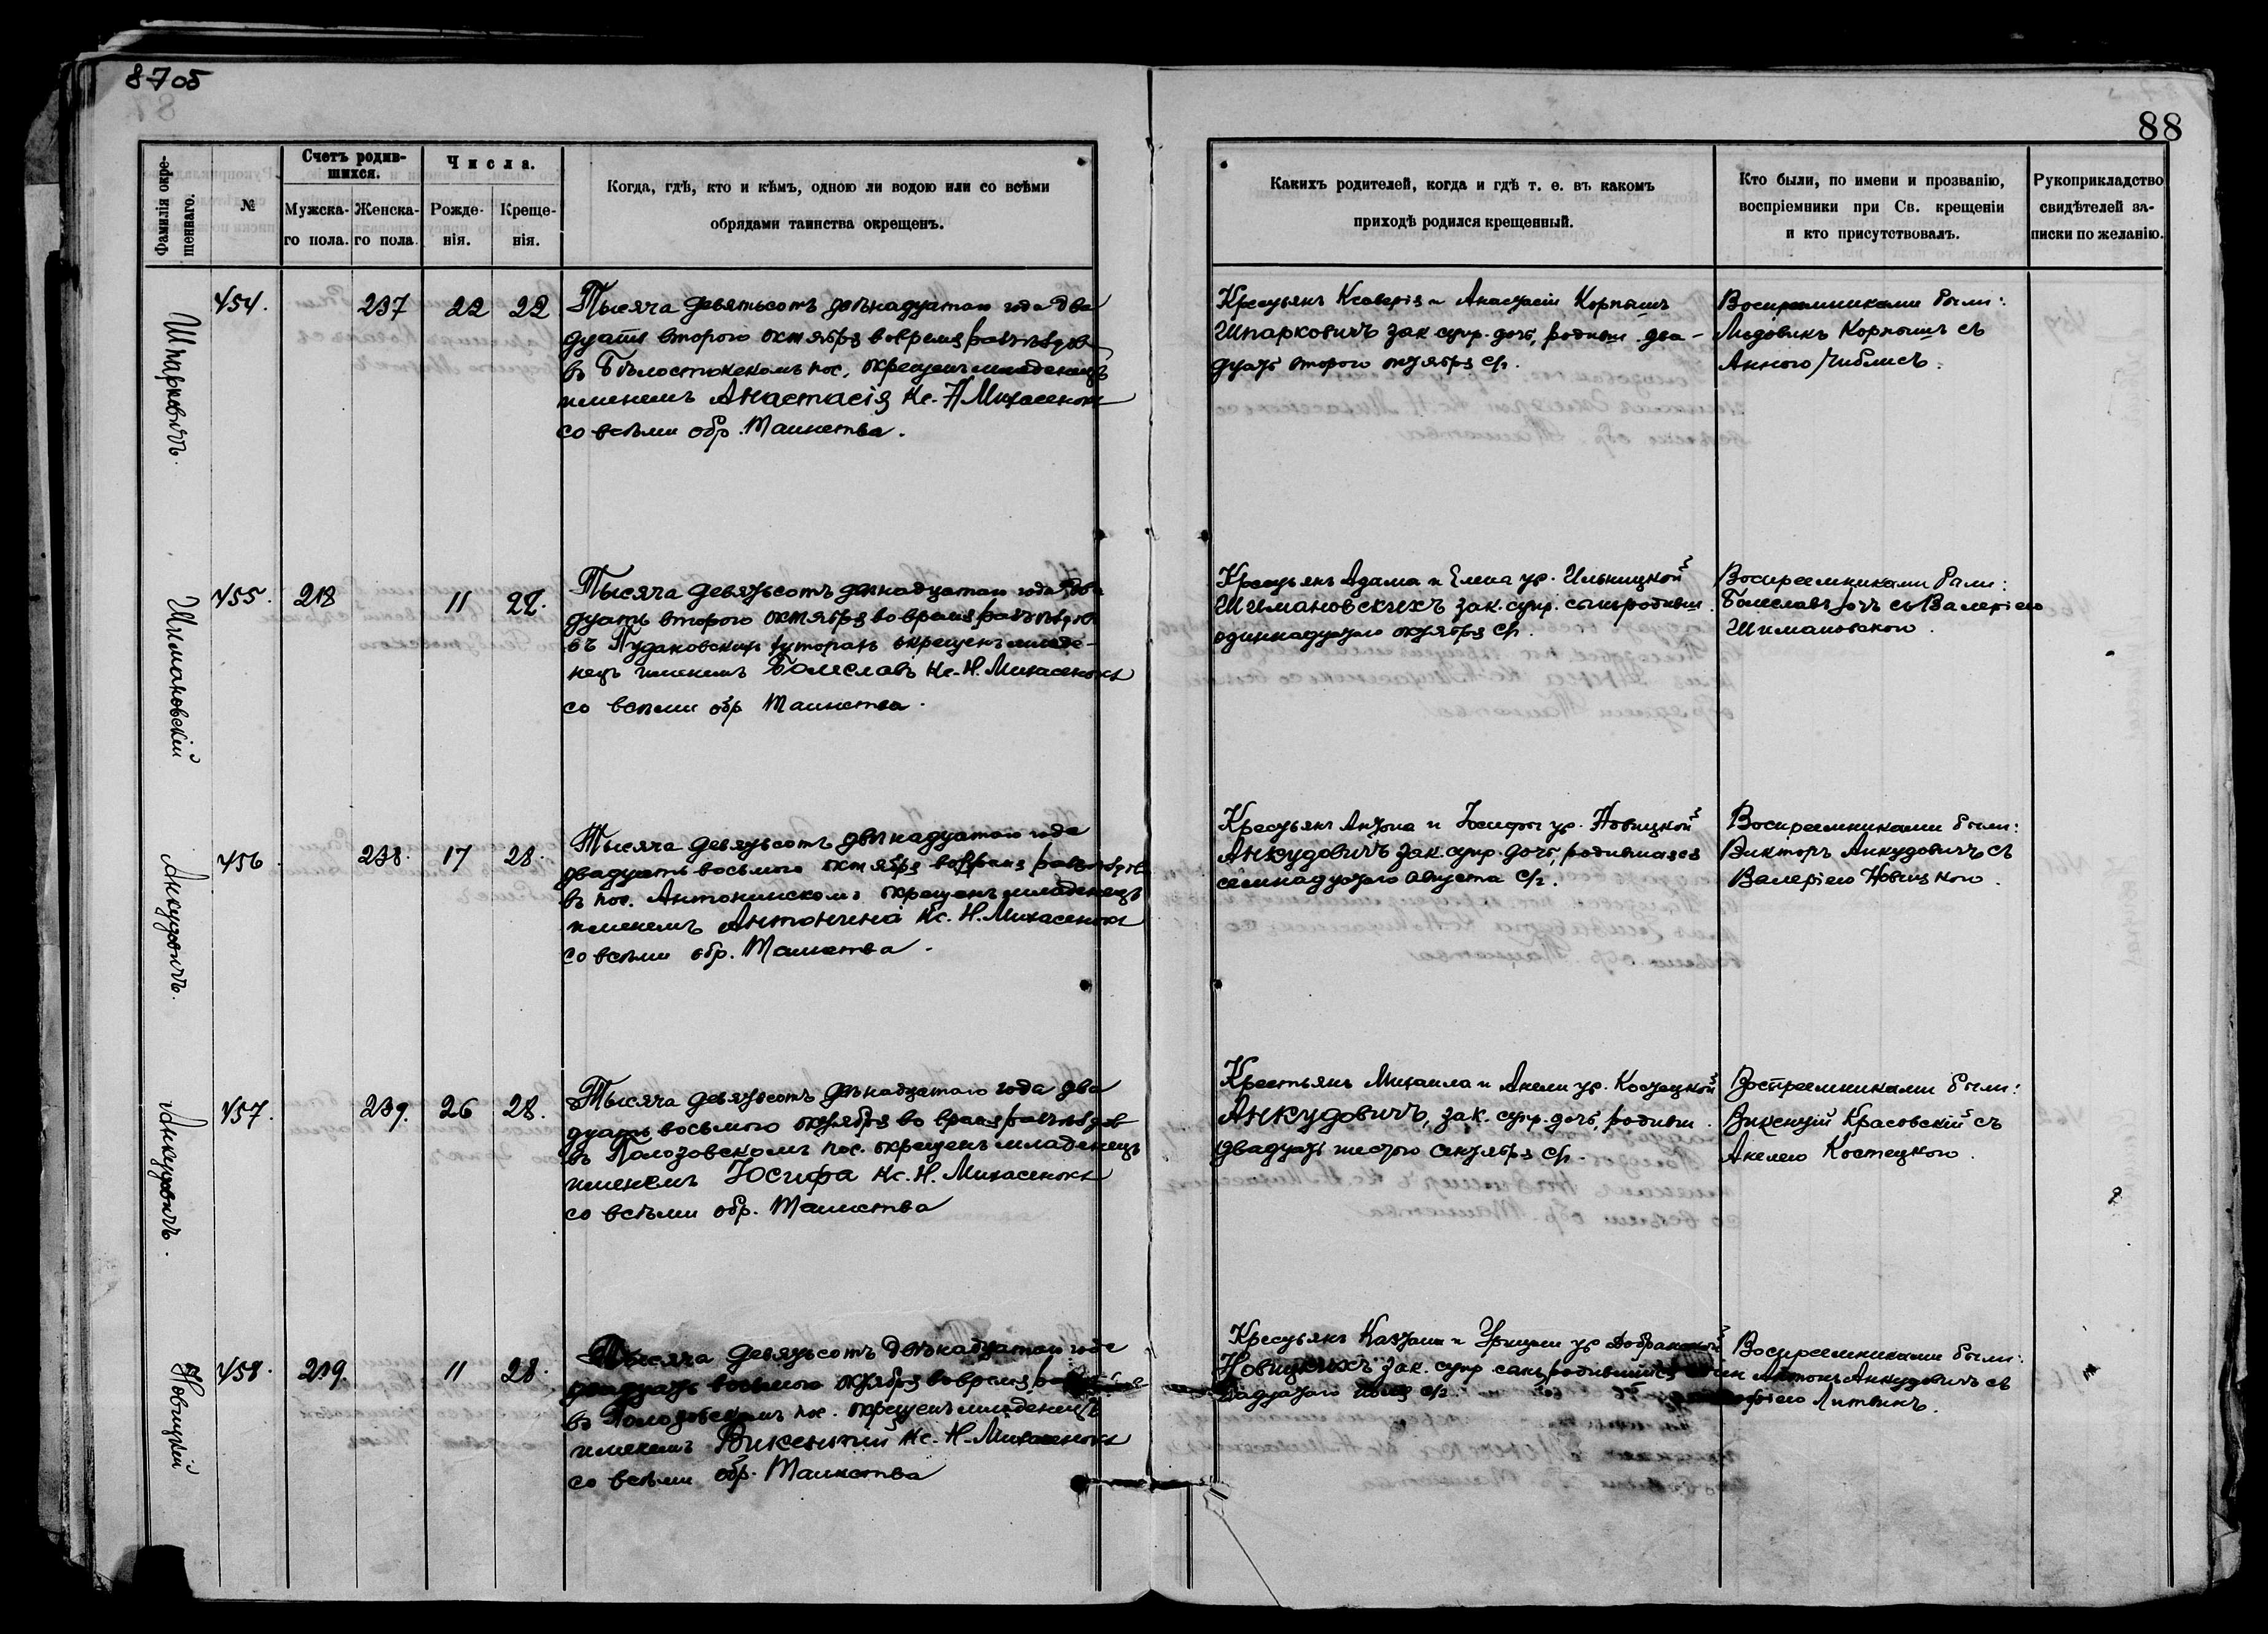 8705
88
Фамилія окре-
щеннаго.
№
Счетъ родив-
шихся.
Мужска-
го пола.
Женска-
го пола.
Числа.
Рожде-
нія.
Креще-
нія.
Когда, гдѣ, кто и кѣмъ, одною ли водою или со всѣми
обрядами таинства окрещенъ.
Какихъ родителей, когда и гдѣ т. е. въ какомъ
приходѣ родился крещенный.
Кто были, по имени и прозванію,
воспріемники при Св. крещеніи
и кто присутствовалъ.
Рукоприкладство
свидѣтелей за-
писки по желанію.
Шпарковичъ.
454.
237
22
22
Тысяча девятьсотъ двѣнадцатаго года два
дцать второго октября во время
въ Бѣлостокскомъ пос. окрещенъ младенецъ
именемъ Анастасія Кс. Н. Михасенокъ
со всѣми обр. Таинства.
Крестьянъ Ксаверія и Анастасіи Корпышъ
Шпарковичъ зак. супр. дочь, родивш. два-
дцать второго октября с/г.
Воспреемниками были:
Людовикъ Корпышъ съ
Анною
Шимановскій
455.
218
11
22.
Тысяча девятьсотъ двѣнадцатаго года два
дцать второго октября во время
въ хуторахъ окрещенъ младе-
нецъ именемъ Болеславъ Кс. Н. Михасенокъ
со всѣми обр Таинства.
Крестьянъ Адама и Елена ур. Ильницкой
Шимановскихъ зак. супр. сынъ, родивш.
одиннадцатаго октября с/г.
Воспреемниками были:
Болеславъ съ Валеріею
Шимановскою.
Анкудовичъ.
456.
238.
17
28.
Тысяча девятьсотъ двѣнадцатаго года
двадцать восьмого октября во время
въ пос. Антонинскомъ окрещенъ младенецъ
именемъ Антонина Кс. Н. Михасенокъ
со всѣми обр. Таинства.
Крестьянъ Антона и Юзефы ур. Новицкой
Анкудовичъ зак. супр. дочь, родившаяся
семнадцатаго августа с/г.
Воспреемниками были:
Викторъ Анкудовичъ съ
Валеріею Новицкою.
Анкудовичъ.
457.
239.
26
28.
Тысяча девятьсотъ двѣнадцатаго года два
дцать восьмого октября во время
въ Полозовскомъ пос. окрещенъ младенецъ
именемъ Юсифа Кс. Н. Михасенокъ
со всѣми обр. Таинства
Крестьянъ Михаила и Анели ур. Костецкой
Анкудовичъ, зак. супр. дочь, родивш.
двадцать шестого сентября с/г.
Воспреемниками были:
Викентій Красовскій съ
Анелею Костецкою.
Новицкій
458.
219.
11
28.
Тысяча девятьсотъ двѣнадцатаго года
двадцать восьмого октября во время
въ Полозовскомъ пос. окрещенъ младенецъ
именемъ Викентій Кс. Н. Михасенокъ
со всѣми обр. Таинства
Крестьянъ и ур.
Новицкихъ зак. супр. сынъ, родившійся
с/г.
Воспреемниками были:
Антонъ Анкудовичъ съ
Литвинъ.